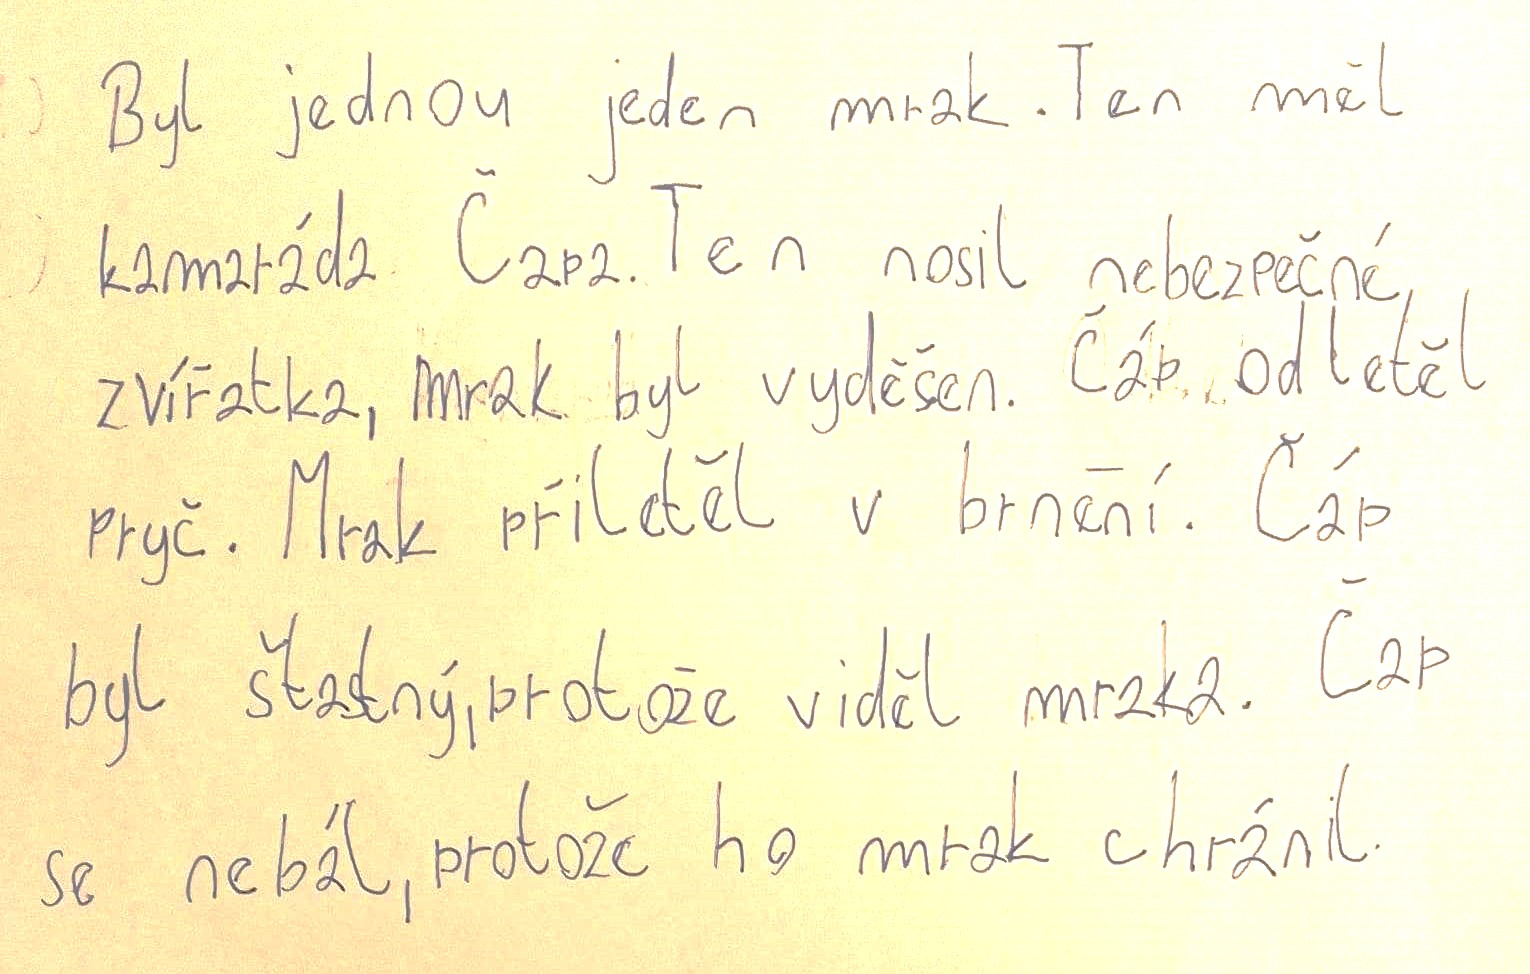 Byl jednou jeden mrak. Ten měl
kamaráda Čapa. Ten nosil nebezpečné
zvířatka, mrak byl vyděšen. Čáp odletěl
pryč. Mrak přiletěl v brnění. Čáp
byl šťastný, protože viděl mraka. Čap
se nebál, protože ho mrak chránil.